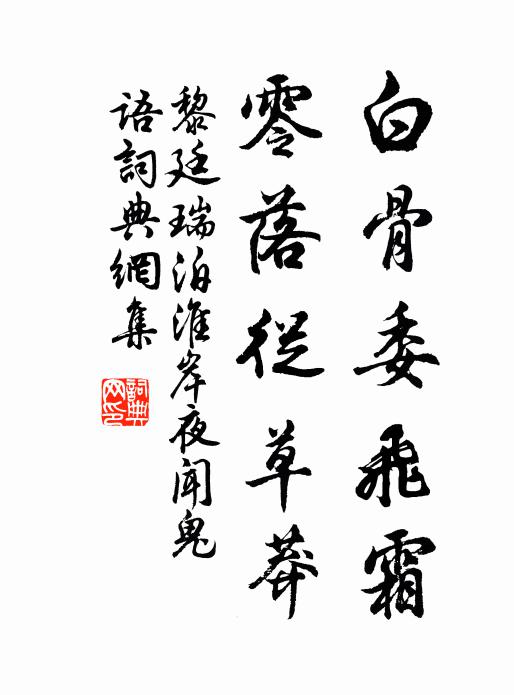 白骨委飛霜
零落從草莽
黎廷瑞泊淮岸夜聞鬼
語詞典網集
詞典
网印